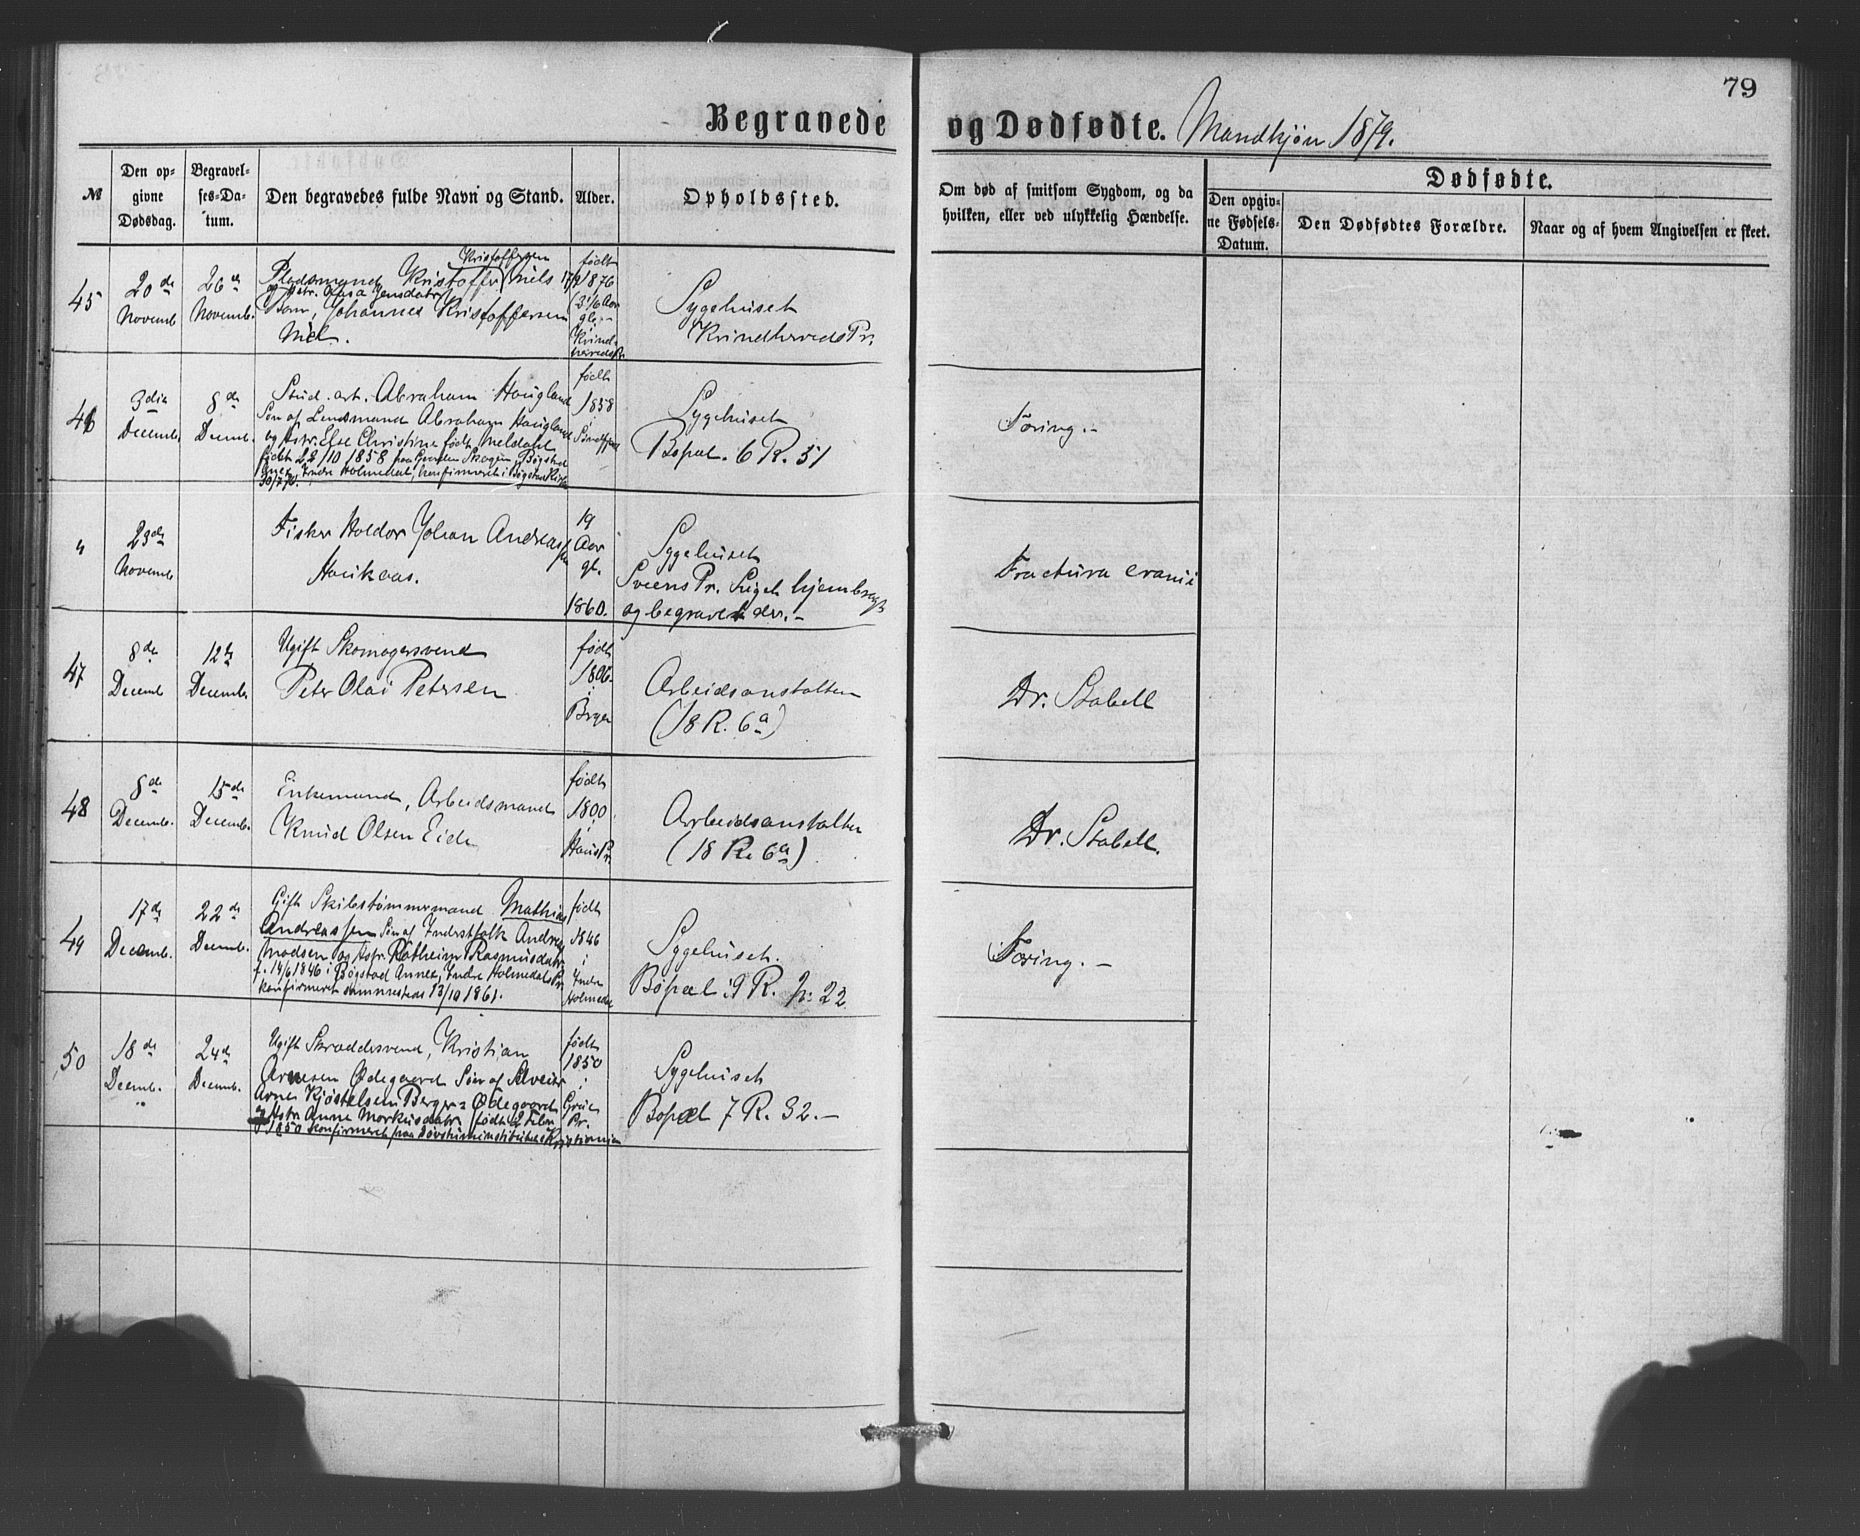 79
Begravede og Dødfødte. Mandkjøn 1879.
№
Den op-
givne
Dødsdag.
Begravel-
ses-Da-
tum.
Den begravedes fulde Navn og Stand.
Alder.
Opholdssted.
Om død af smitsom Sygdom, og da
hvilken, eller ved ulykkelig Hændelse.
Dødfødte.
Den opgiv-
ne Fødsels-
Datum.
Den Dødfødtes Forældre.
Naar og af hvem Angivelsen er skeet.
45
20de
Novemb.
26de
Novemb.
Kristoffersen
Pladsmand Kristoffer Niels
Jensdatr
Barn, Johannes Kristoffersen
født
1876
Kvind-
hereds Pr.
Sygehuset
Kvindhereds Pr.
46
3die
Decemb.
8de
Decemb.
Stud. art. Abraham Haugland
Søn af Lensmand Abraham Haugland
og Hstr. Else Christine født Meldahl
født 22/10 1858 paa Gaarden Skogen, Bøgstad
Anex, Indre Holmedal, konfirmeret i Bøgstad Kirke
født
1858
i
Søndfjord
Sygehuset
Bopæl. 6 R. 51
Tæring.-
"
23de
Novemb.
Fisker Haldor Johan Andreassen
Haukaas.
19
Aar
gl.
1860.
Sygehuset
Sveens Pr. Liget hjembragt
og begravet der.-
Fractura cranii
47
8de
Decemb.
12te
Decemb.
Ugift Skomagersvend
Peter Olai Petersen
født
1806
i
Bergen
Arbeidsanstalten
(18 R. 6a)
Dr. Stabell
48
8de
Decemb.
15de
Decemb.
Enkemand, Arbeidsmand
Knud Olsen Eide
født
1800
i
Haus Pr.
Arbeidsanstalten
(18 R. 6a).
Dr. Stabell.
49
17de
Decemb.
22de
Decemb.
Gift Skibstømmermand Mathias
Andreassen Søn af Inderstfolk Andreas
Madsen og Hstr. Ratheim Rasmusdatr
f. 14/6 1846 i Bøgstad Annex, Indre Holmedals Pr.
konfirmeret sammesteds 13/10 1861.
født
1846
i
Indre
Holmedal
Sygehuset.
Bopæl 9 R. N: 22.
Tæring.-
50
18de
Decemb.
24de
Decemb.
Ugift Skræddersvend, Kristian
Arnesen Ødegaard Søn af Selveier
Arne Kjøstelsen Berger = Ødegaard
og Hstr. Anne Markusdatr, født 2 Febr
1850 konfirmeret paa Døvstumeinstitutet i Kristiania
født
1850
i
Grue
Pr.
Sygehuset
Bopæl 7 R. 32.-